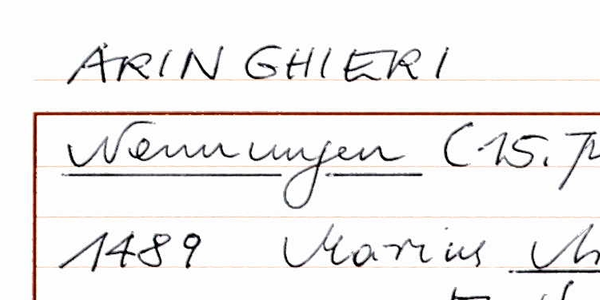 ARINGHIERI
Nennungen (15.
1489 Marius